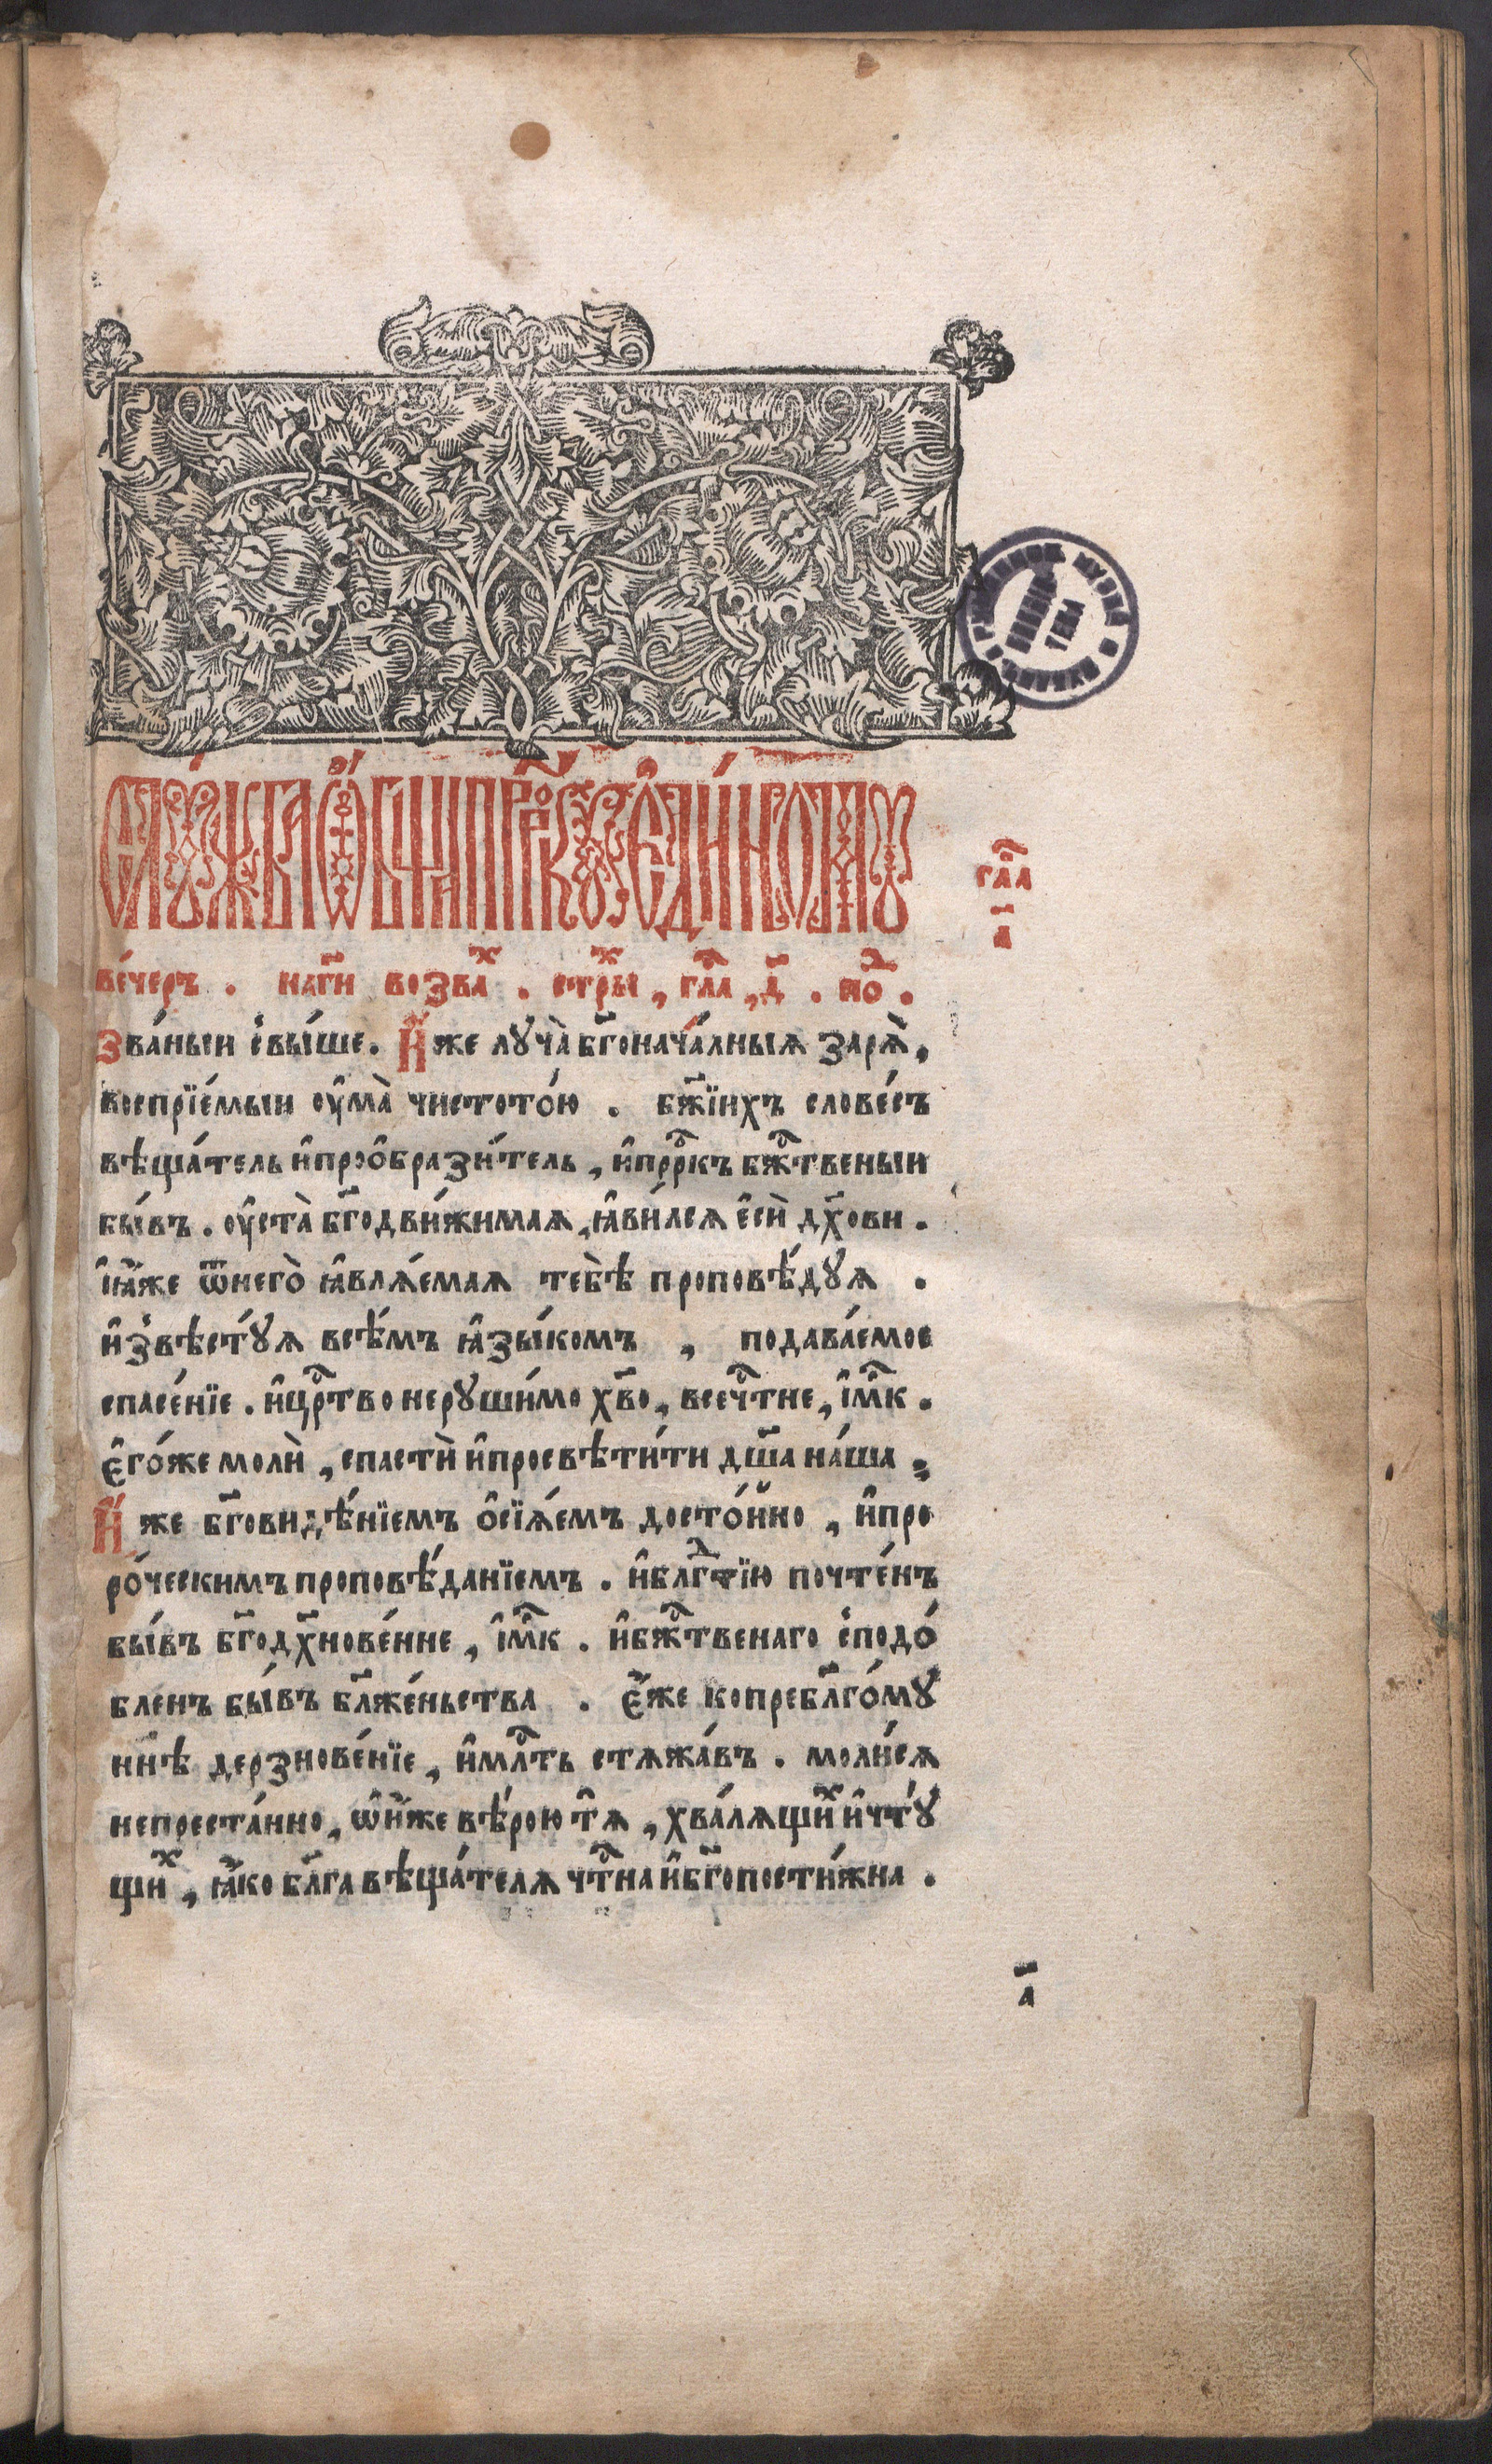 слꙋ́жба ѻ҆́бщаѧ прⷪ҇рокꙋ є҆ди́номꙋ
глⷡ҇а
а҃
ве́черъ . на гди возваⷯ . стⷯры , глⷡ҇а , д҃ . поⷣ .
зва́ныи свы́ше . И҆́же лꙋча̀ бг҃онача́лныѧ зарѧ̀ ,
воспрїе́мыи ᲂу҆ма̀ чистото́ю . бж҃їихъ слове́съ
вѣща́тель и҆проѻ҆брази́тель , и҆прⷪ҇ркъ бжⷭ҇твеныи
бы́въ . ᲂу҆ста̀ бг҃одви́жимаѧ , ꙗ҆ви́лсѧ є҆сѝ дх҃ови .
ꙗ҆́же ѿнего̀ ꙗ҆влѧ́емаѧ тебѣ̀ проповѣ́дꙋѧ .
и҆звѣстꙋ́ѧ всѣ́мъ ꙗ҆зы́комъ , подава́емое
спасе́нїе . и҆црⷭ҇тво нерꙋши́мо хв҃о , всечⷭ҇тне , і҆мⷬ҇к .
є҆го́же молѝ , спастѝ и҆просвѣти́ти дш҃а на́ша ,
И҆́ же бг҃овидѣ́нїемъ ѻ҆сїѧ́емъ досто́йно , и҆про
ро́ческимъ проповѣ́данїемъ . и҆блгⷣтїю почте́нъ
бы́въ бг҃одх҃нове́нне , і҆мⷬ҇к . и҆бжⷭ҇твенаго сподо́
бленъ бы́въ бл҃же́ньства . є҆́же ко пребл҃го́мꙋ
нн҃ѣ дерзнове́нїе , и҆млⷭ҇ть стѧжа́въ . моли́сѧ
непреста́нно , ѡ҆и҆́же вѣ́рою тѧ̀ , хва́лѧщиⷯ и҆чтꙋ́
щиⷯ , ꙗ҆́ко бл҃га вѣща́телѧ чⷭ҇тна и҆бг҃опости́жна .
а҃